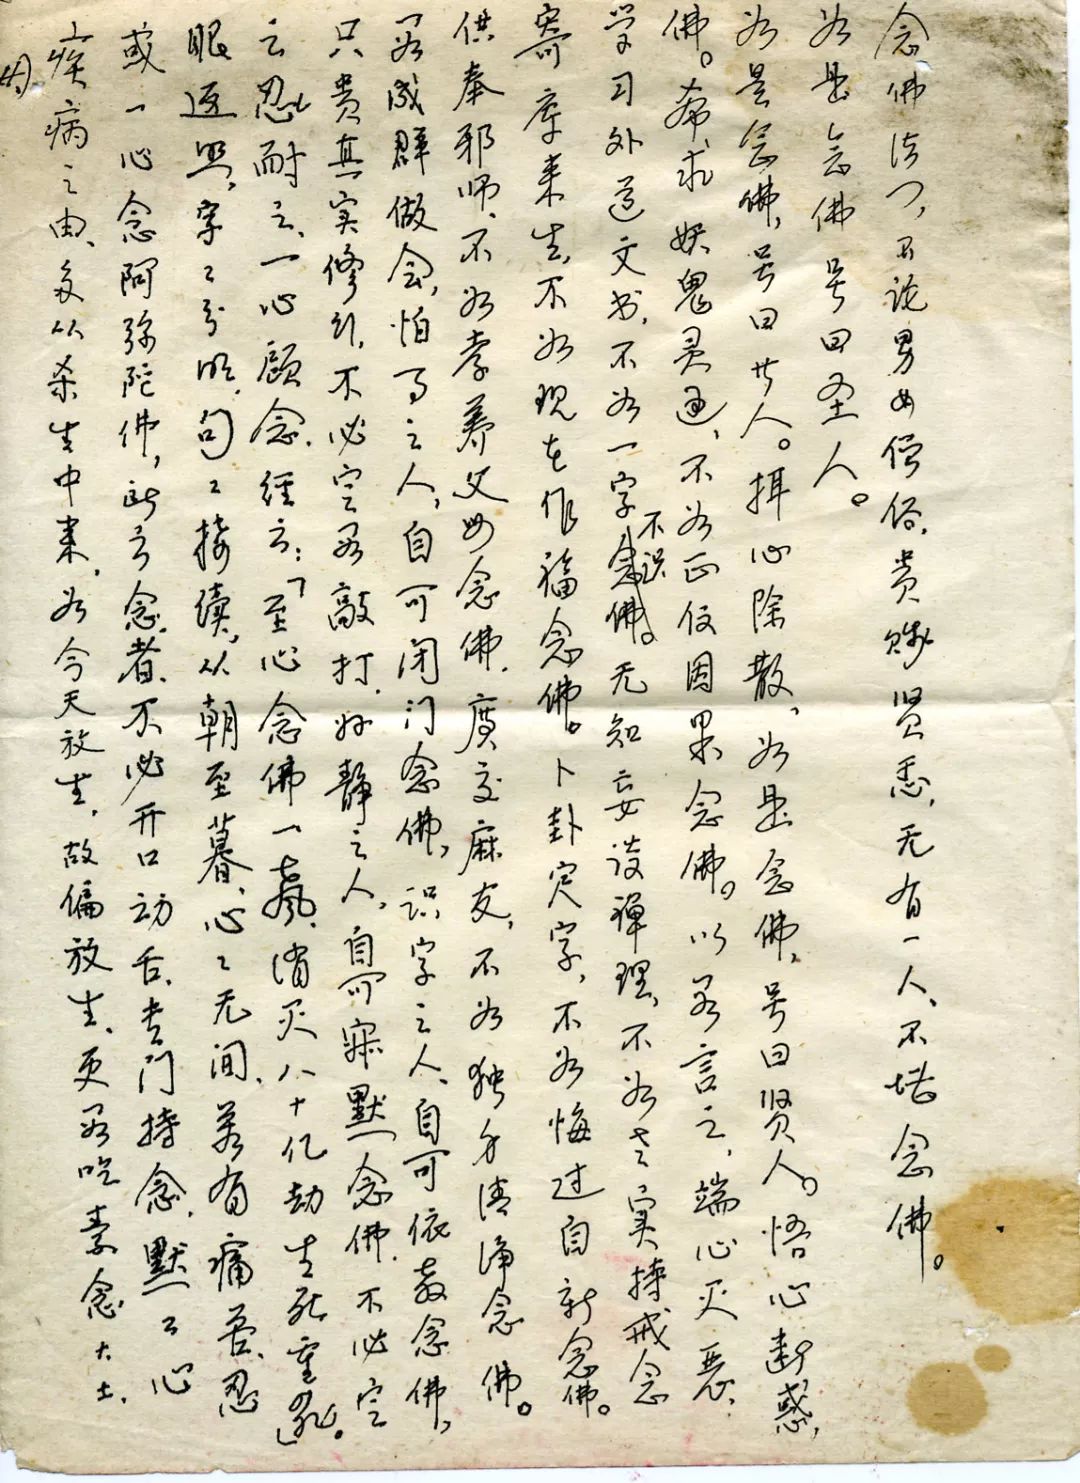 因
疾病之由，多从杀生中来，如今天放生，故偏放生，更要吃素念大士，
或一心念阿弥陀佛，所言念者，不必开口动舌，专门持念，默〻心
眼返照，字〻分明，句〻接续，从朝至暮，心〻无间，若有痛苦，忍
之忍耐之，一心顾念，经云：「至心念佛一声，消灭八十亿劫生死重罪」。
只贵真实修行，不必定要敲打，好静之人，自可寂默念佛，不必定
要成群做会，怕事之人，自可闭门念佛，识字之人，自可依教念佛，
供奉邪师，不如孝养父母念佛，广交麻友，不如独身清净念佛。
寄库来生，不如现在作福念佛。卜卦字，不如悔过自新念佛。
学习外道文书，不如一字不识念佛。无知妄谈禅理，不如老实持戒念
佛。希求妖鬼灵通，不如正信因果念佛。以要言之，端心灭恶，
如是念佛，号曰廿人。摄心除散，如是念佛，号曰贤人。悟心断惑，
如是念佛号曰圣人。
念佛法门，不论男女僧俗，贵贱贤愚，无有一人，不堪念佛。